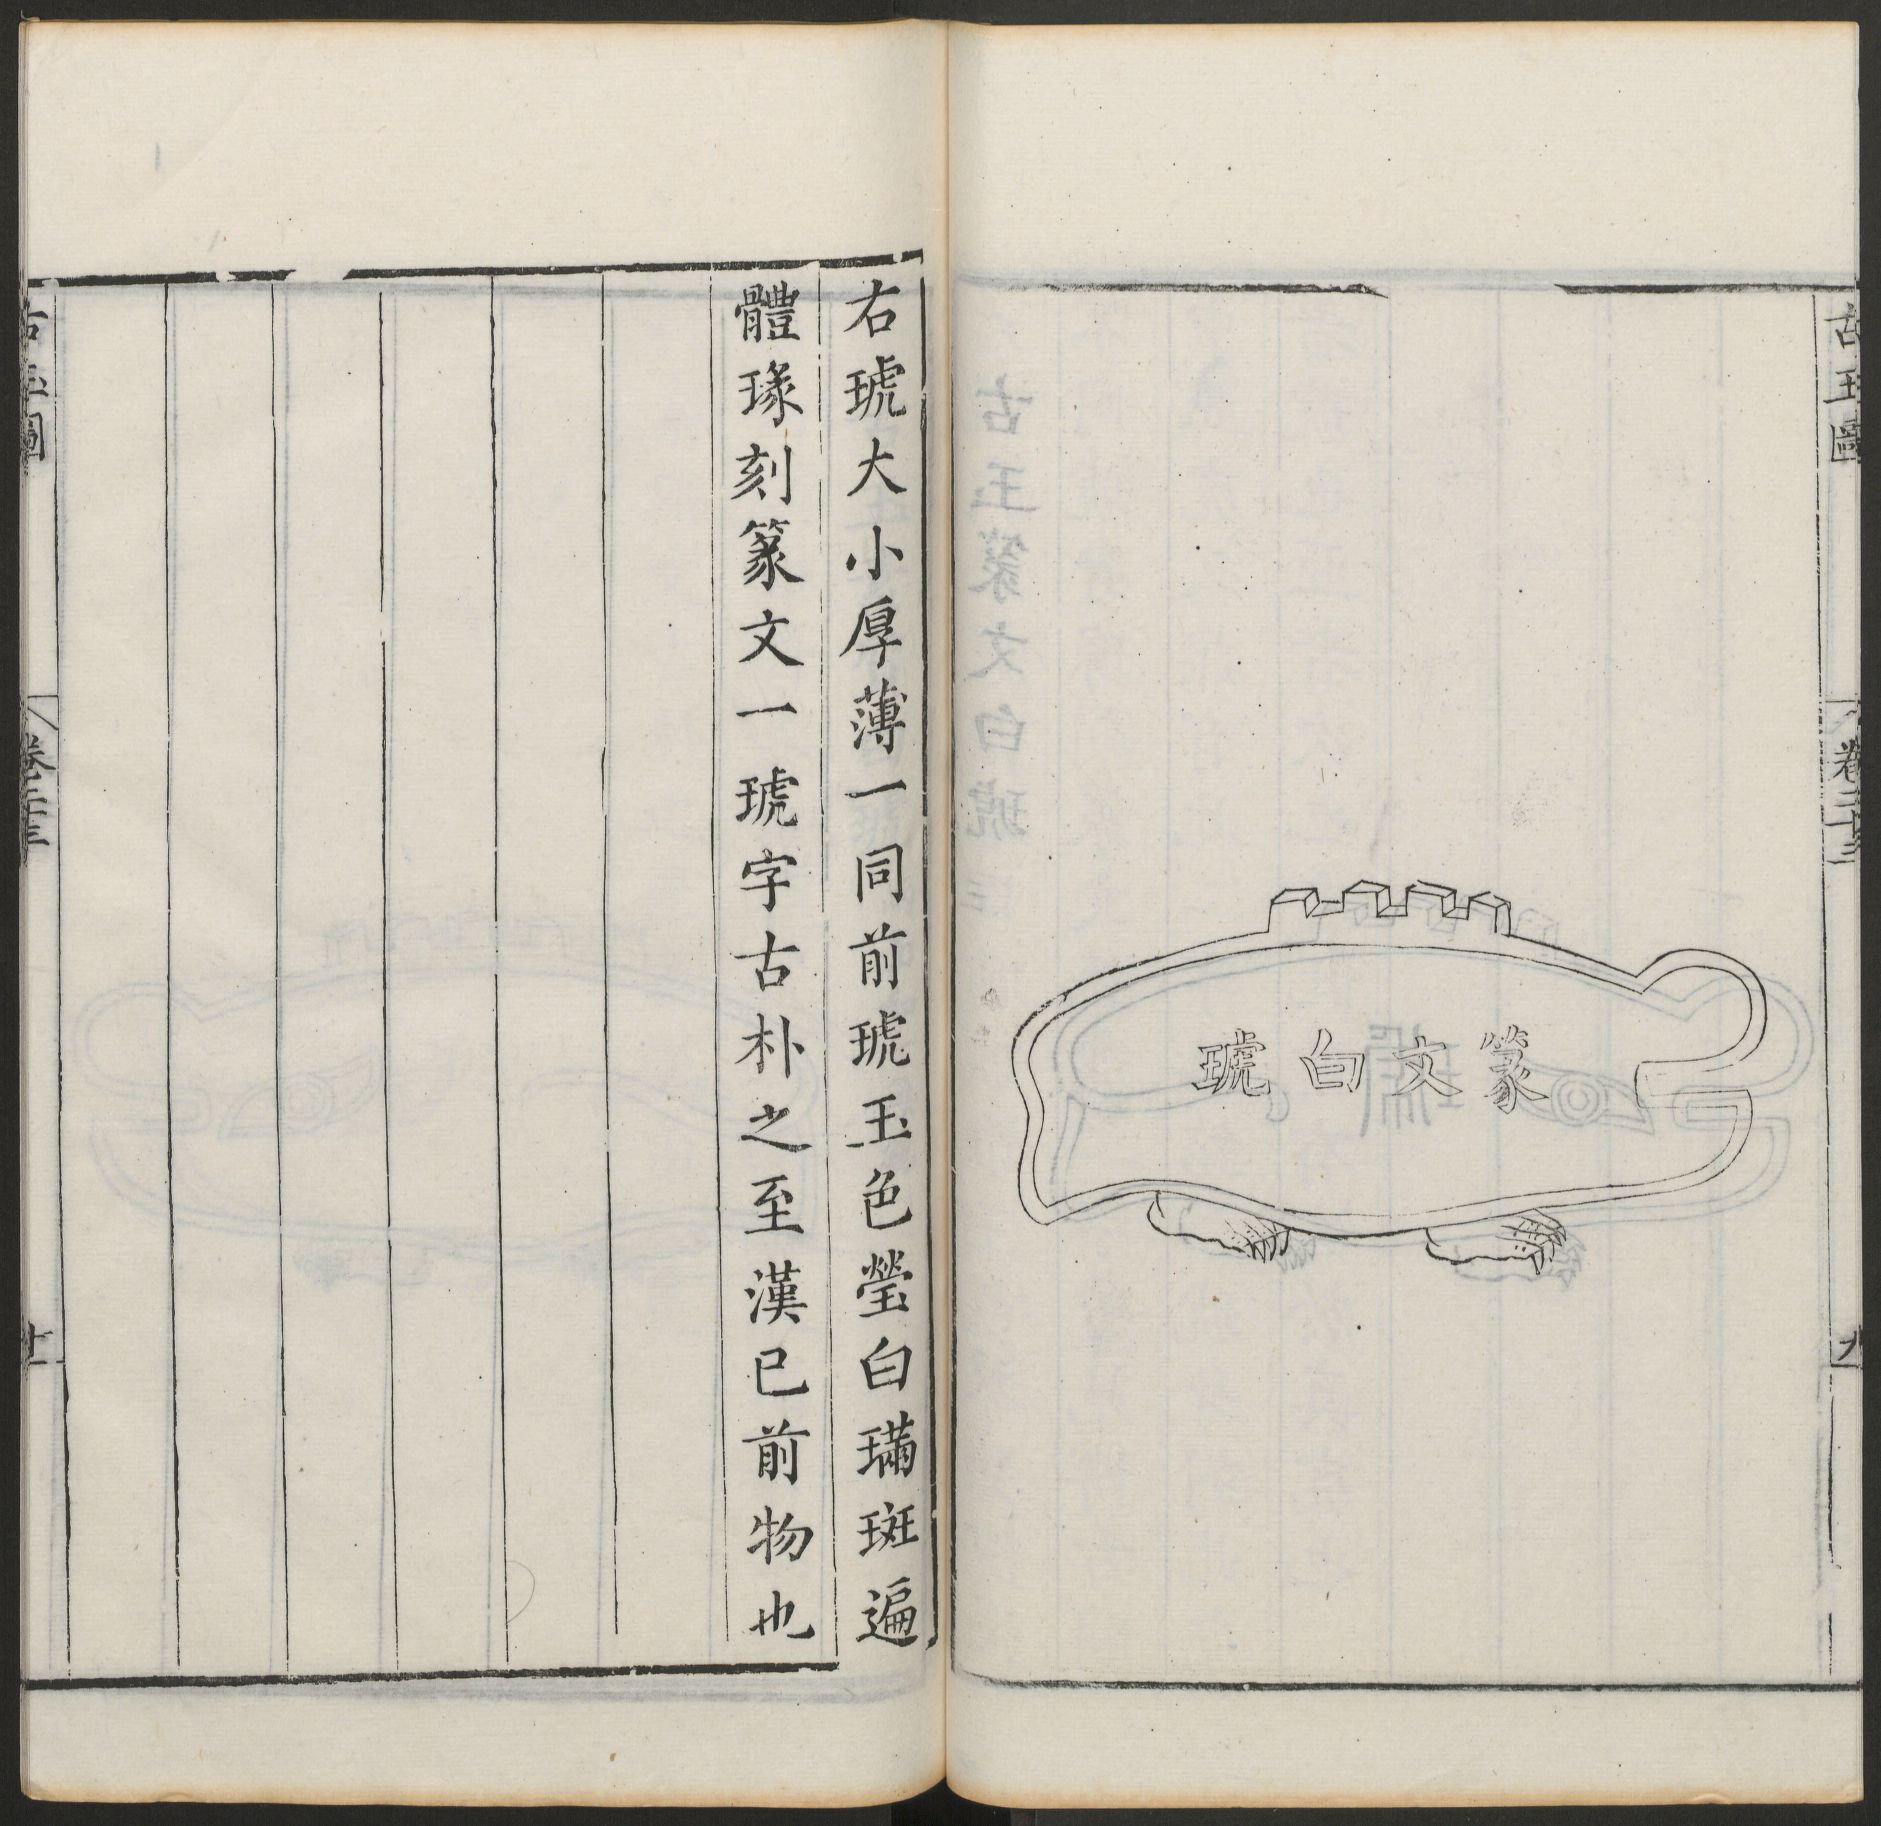 古玉圖
卷三十三
九
篆文白琥
右琥大小厚薄一同前琥玉色瑩白璊斑遍
體瑑刻篆文一琥字古朴之至漢已前物也
古玉圖